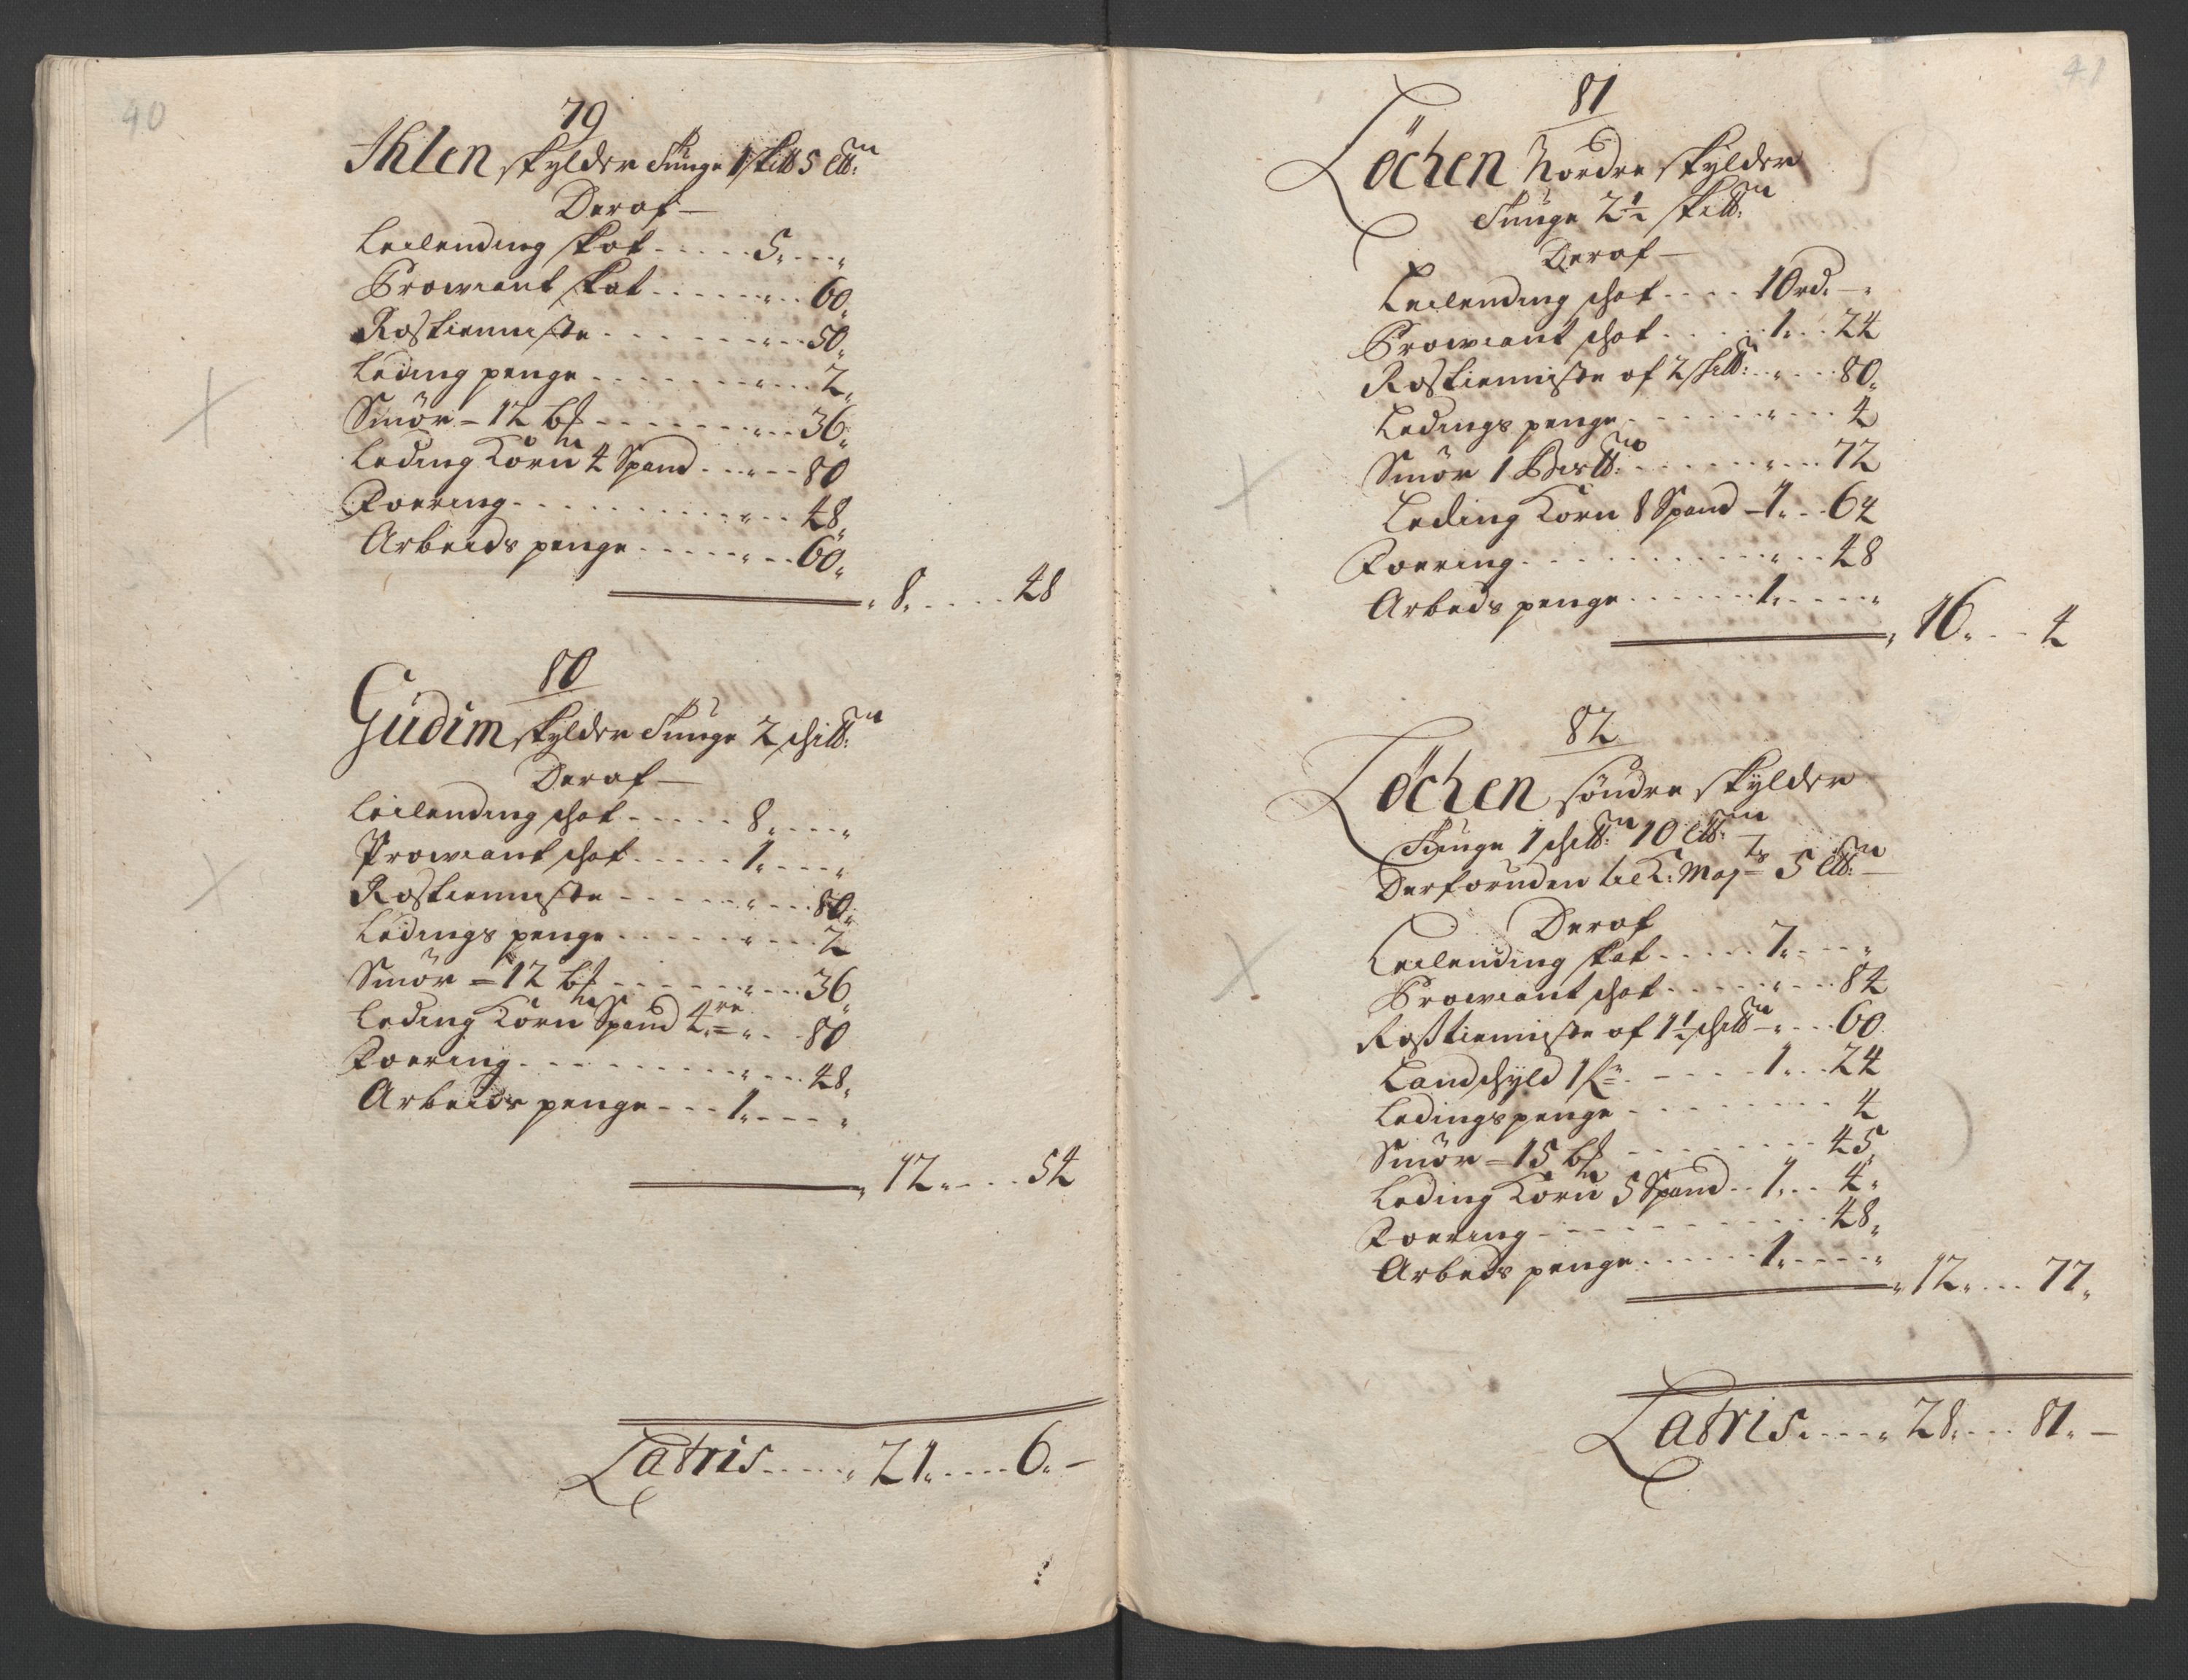 40
79
Ihlen skylder Tunge 1 skill 5 lb:
Deraf —
Leilending skat - - - - - 5„ - - - „
Prowiant skat - - - - - - „ - - 60„
Rostienniste - - - - - - - „ - - 50„
Leding penge - - - - - - - „ - - - 2„
Smör = 12 b𝔩 - - - - - - - „ - - - 36„
Leding Korn 4 Spand - - „ - - 80
Foering - - - - - - - - - - „ - - 48„
Arbeids penge - - - - - „ - - 60„
„ 8„ - - - - 48
80
Gudim skylder Tunge 2 skill:
Deraf —
Leilending skat - - - - - 8„ - - - „
Prowiant skat - - - - - 1„ - - - „
Rostienniste - - - - - - „ - - - 80„
Ledings penge - - - - - - „ - - - 2
Smör = 12 b𝔩 - - - - - - „ - - - 36„
Leding Korn Spand 4re „ - - 80
Foering - - - - - - - - - - „ - - - 48„
Arbeids penge - - - 1„ - - - „
„ 12„ - - - 54
Latris - - - - - „ 21„ - - - - 6„ —
41
81
Löchen Nordre skylder
Tunge 2½ skill:
Deraf —
Leilending skat - - - - 10 rd: — „
Prowiant skat - - - - - 1„ - - 24
Rostienniste af 2 skill: - - „ - - - 80„
Ledings penge - - - - - - „ - - - 4
Smör 1 - - - - - - - „ - - - 72
Leding Korn 8 Spand — 1„ - - 64
Foering - - - - - - - - - - - „ - - 48
Arbeds penge - - - - - - 1„ - - - - „
„ 16„ - - - 4
82
Löchen söndre skylder
Tunge 1 skill: 10 lb:
Derforuden til K: Majts 5 lb: —
Deraf
Leilending skat - - - - - 7„ - - - „
Prowiant skat - - - - - - „ - - - 84
Rosstienniste af 1½ skill — „ - - - 60
Landskyld 1 - - - - - 1„ - - 24
Ledingspenge - - - - - - - - - 4
Smör = 15 b𝔩 - - - - - - - „ 45„
Leding Korn 5 Spand - - 1„ - - 4„
Foering - - - - - - - - - - - 48„
Arbeds penge - - - - - - 1„ - - - - „
„ 12„ - - - 77„
Latris - - - - „ 28„ - - - 81„ —